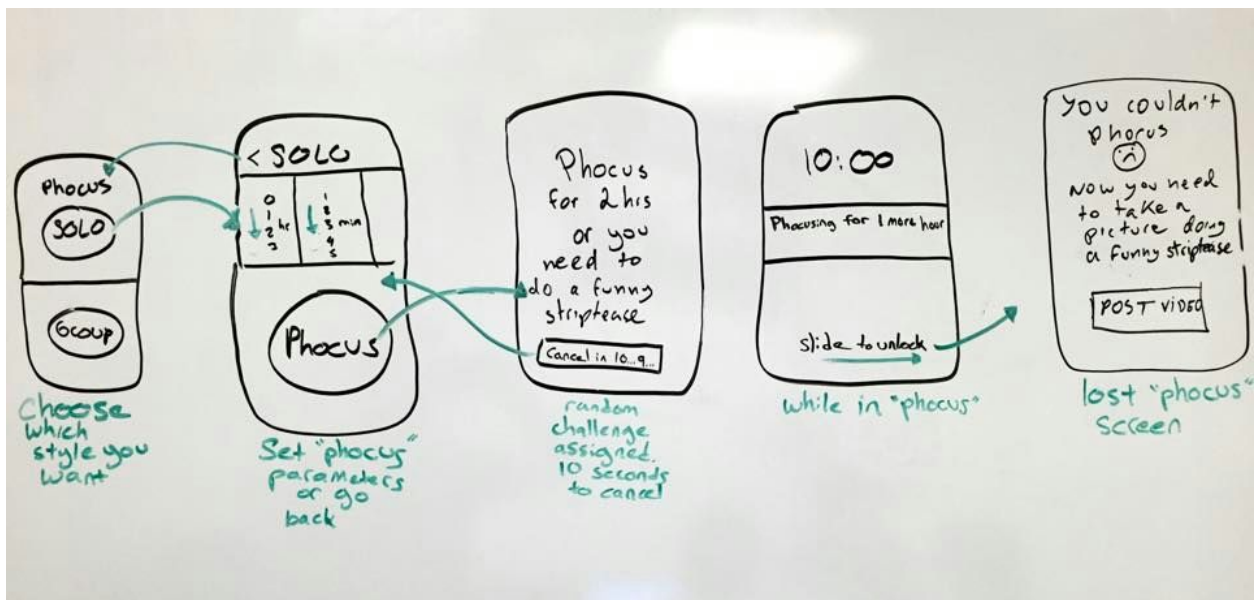 Phocus
SOLO
Group
choose
which
style you
want
< SOLO
0
1
2 hr
3
1
2
3 min
4
5
Phocus
Set "phocus"
parameters
or go
back
Phocus
for 2 hrs
or you
need to
do a funny
striptease
Cancel in 10...9...
random
challenge
assigned.
10 seconds
to cancel
10:00
Phocusing for 1 more hour
slide to unlock
while in "phocus"
You couldn't
phocus
Now you need
to take a
picture doing
a funny striptease
POST VIDEO
lost "phocus"
screen